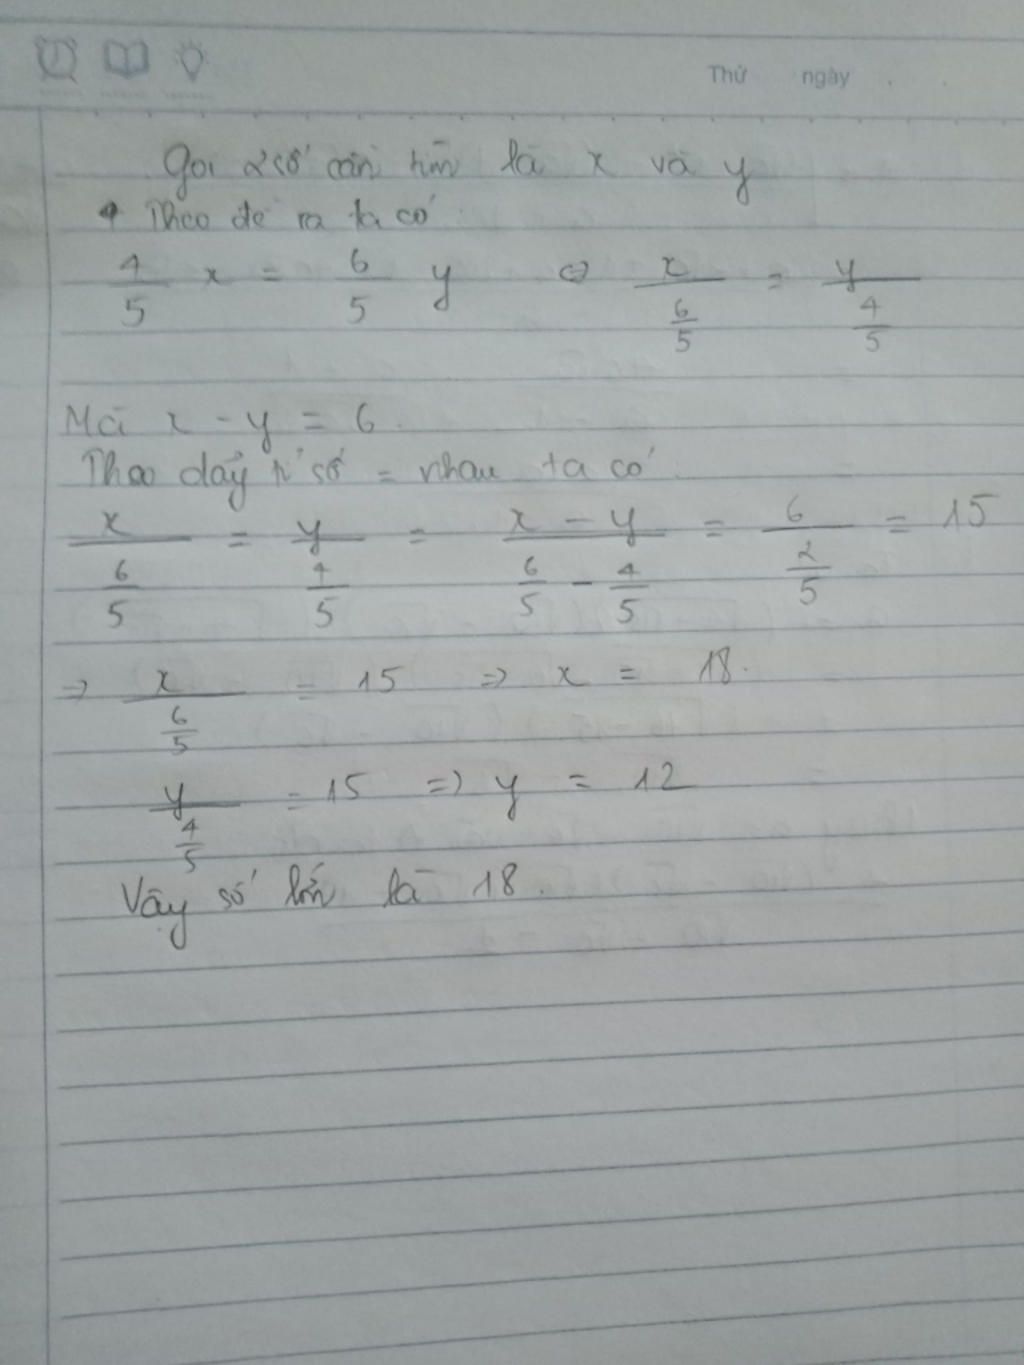 Thứ ngày
Gọi 2 số cần tìm là x và y
Theo đề ra ta có :
4/5 x = 6/5 y <=> x/(6/5) = y/(4/5)
Mà x - y = 6.
Theo dãy tỉ số = nhau ta có :
x/(6/5) = y/(4/5) = (x - y)/(6/5 - 4/5) = 6/(2/5) = 15
=> x/(6/5) = 15 => x = 18.
y/(4/5) = 15 => y = 12
Vậy số lớn là 18.